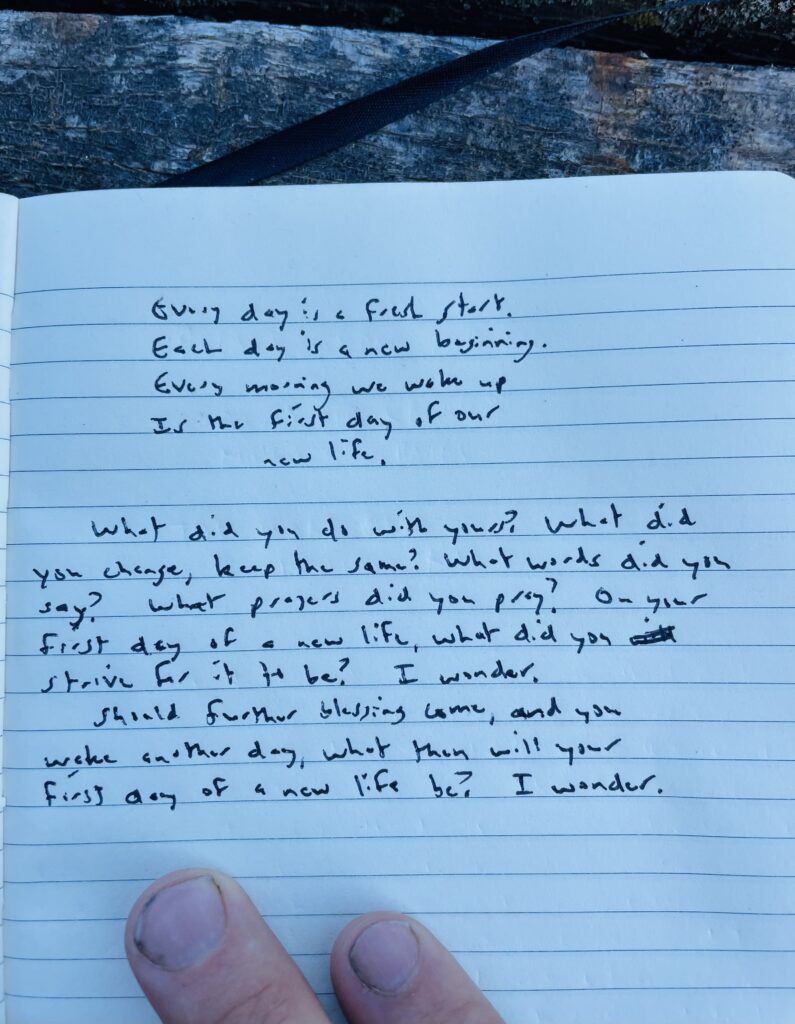 Every day is a fresh start.
Each day is a new beginning.
Every morning we wake up
Is the first day of our
new life.
What did you do with yours? What did
you change, keep the same? What words did you
say? What prayers did you pray? On your
first day of a new life, what did you
strive for it to be? I wonder.
Should further blessing come, and you
wake another day, what then will your
first day of a new life be? I wonder.